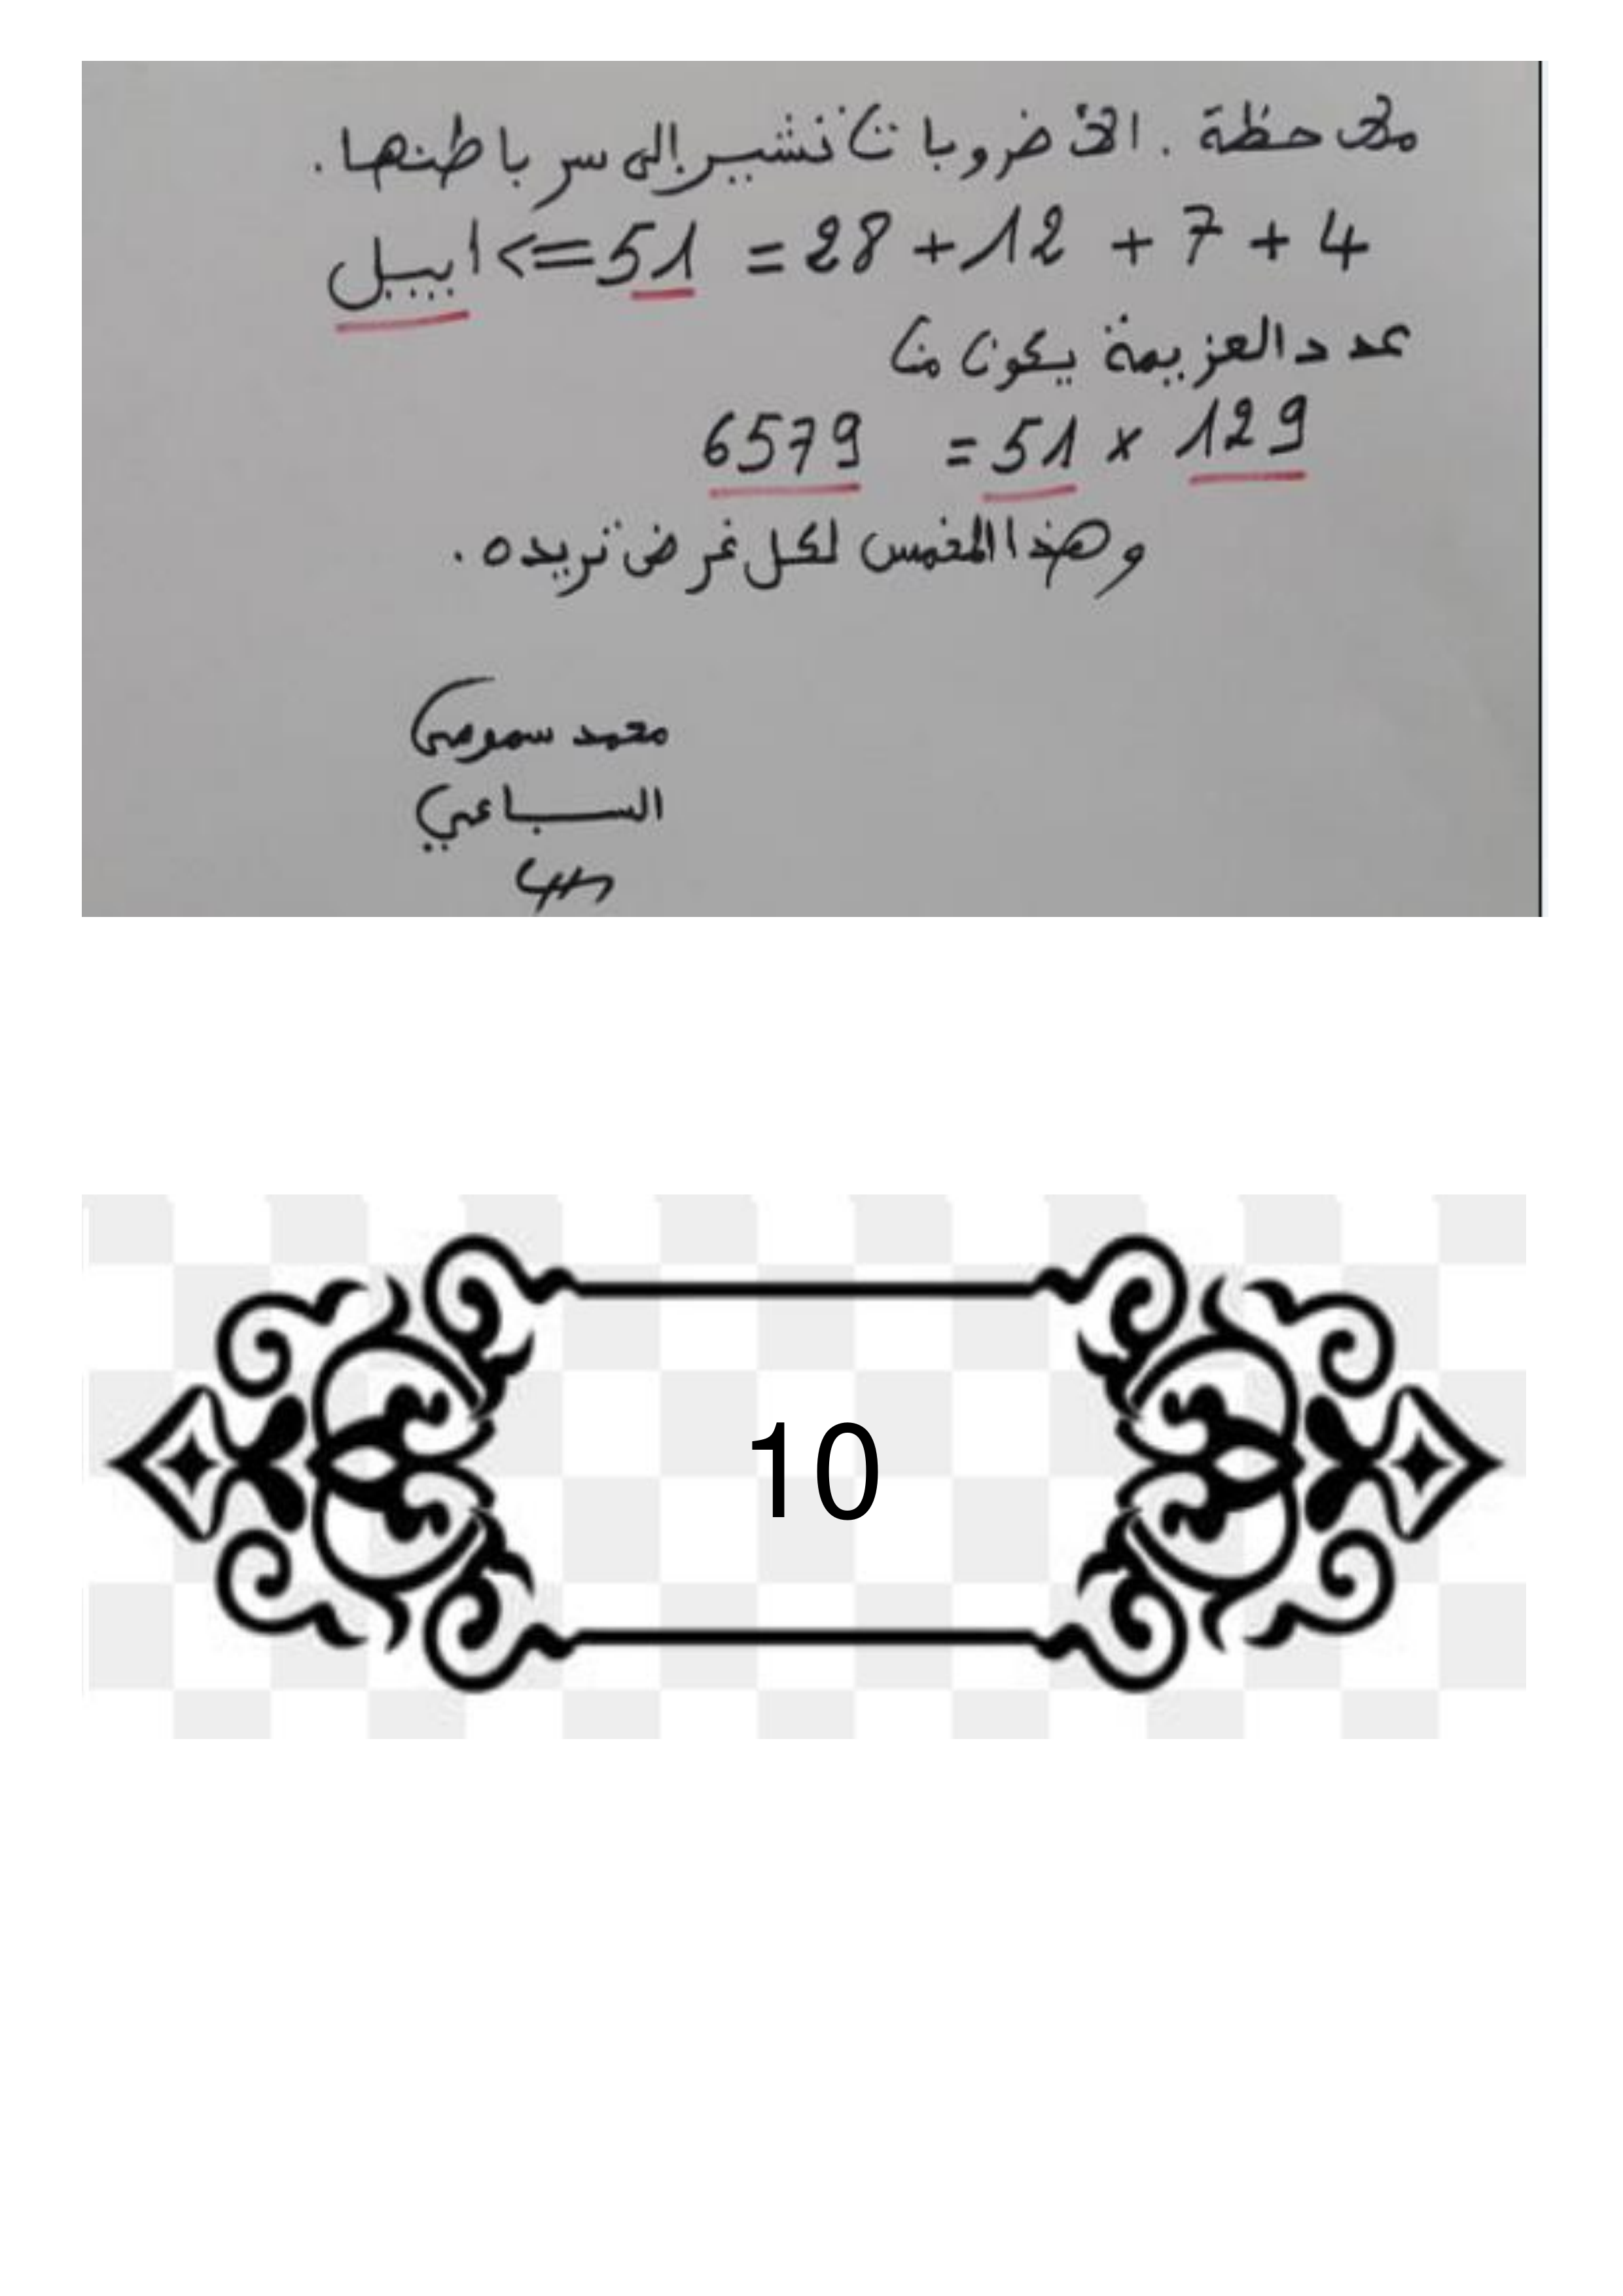 ملاحظة . الاضروبات تشير إلى سر باطنها .
4 + 7 + 12 + 28 = 51 <= ابييل
عدد العزيمة يكون من
129 × 51 = 6579
وهذا المخمس لكل غرض تريده .
محمد سموحي
السباعي
10